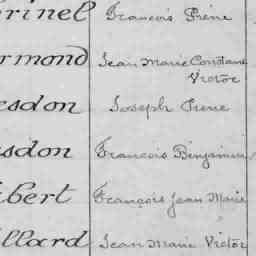 rinel François Réné
rmond Jean Marie Constant
Victor
esdon Joseph Réné
sdon François Benjamin
bert François Jean Marie
llard Jean Marie Victor